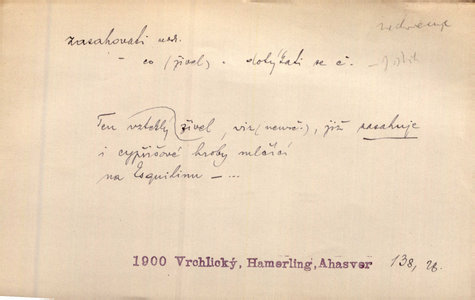 zasahovati ned.
– co (živel) . dotýkati se č.
Ten vzteklý živel, viz (neurč.), již zasahuje
i cypřišové hroby mlčící
na Esquilinu – ...
1900 Vrchlický, Hamerling, Ahasver 138, 26.